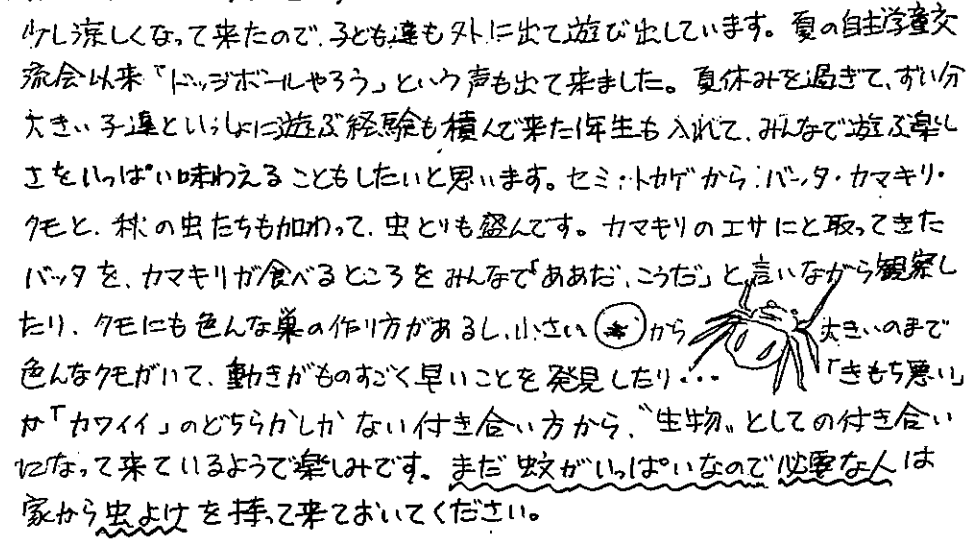 少し涼しくなって来たので、子ども達も外に出て遊び出しています。夏の自主学童交
流会以来「ドッジボールやろう」という声も出て来ました。夏休みを過ぎて、ずい分
大きい子達といっしょに遊ぶ経験も積んで来た1年生も入れて、みんなで遊ぶ楽し
さをいっぱい味わえることもしたいと思います。セミ・トカゲから、バッタ・カマキリ・
クモと、秋の虫たちも加わって、虫とりも盛んです。カマキリのエサにと取ってきた
バッタを、カマキリが食べるところをみんなで「ああだ、こうだ」と言いながら観察し
たり、クモにも色んな巣の作り方があるし、小さい から 大きいのまで
色んなクモがいて、動きがものすごく早いことを発見したり・・・「きもち悪い」
か「カワイイ」のどちらかしかない付き合い方から、〝生物〟としての付き合い
になって来ているようで楽しみです。まだ蚊がいっぱいなので必要な人は
家から虫よけを持って来ておいてください。